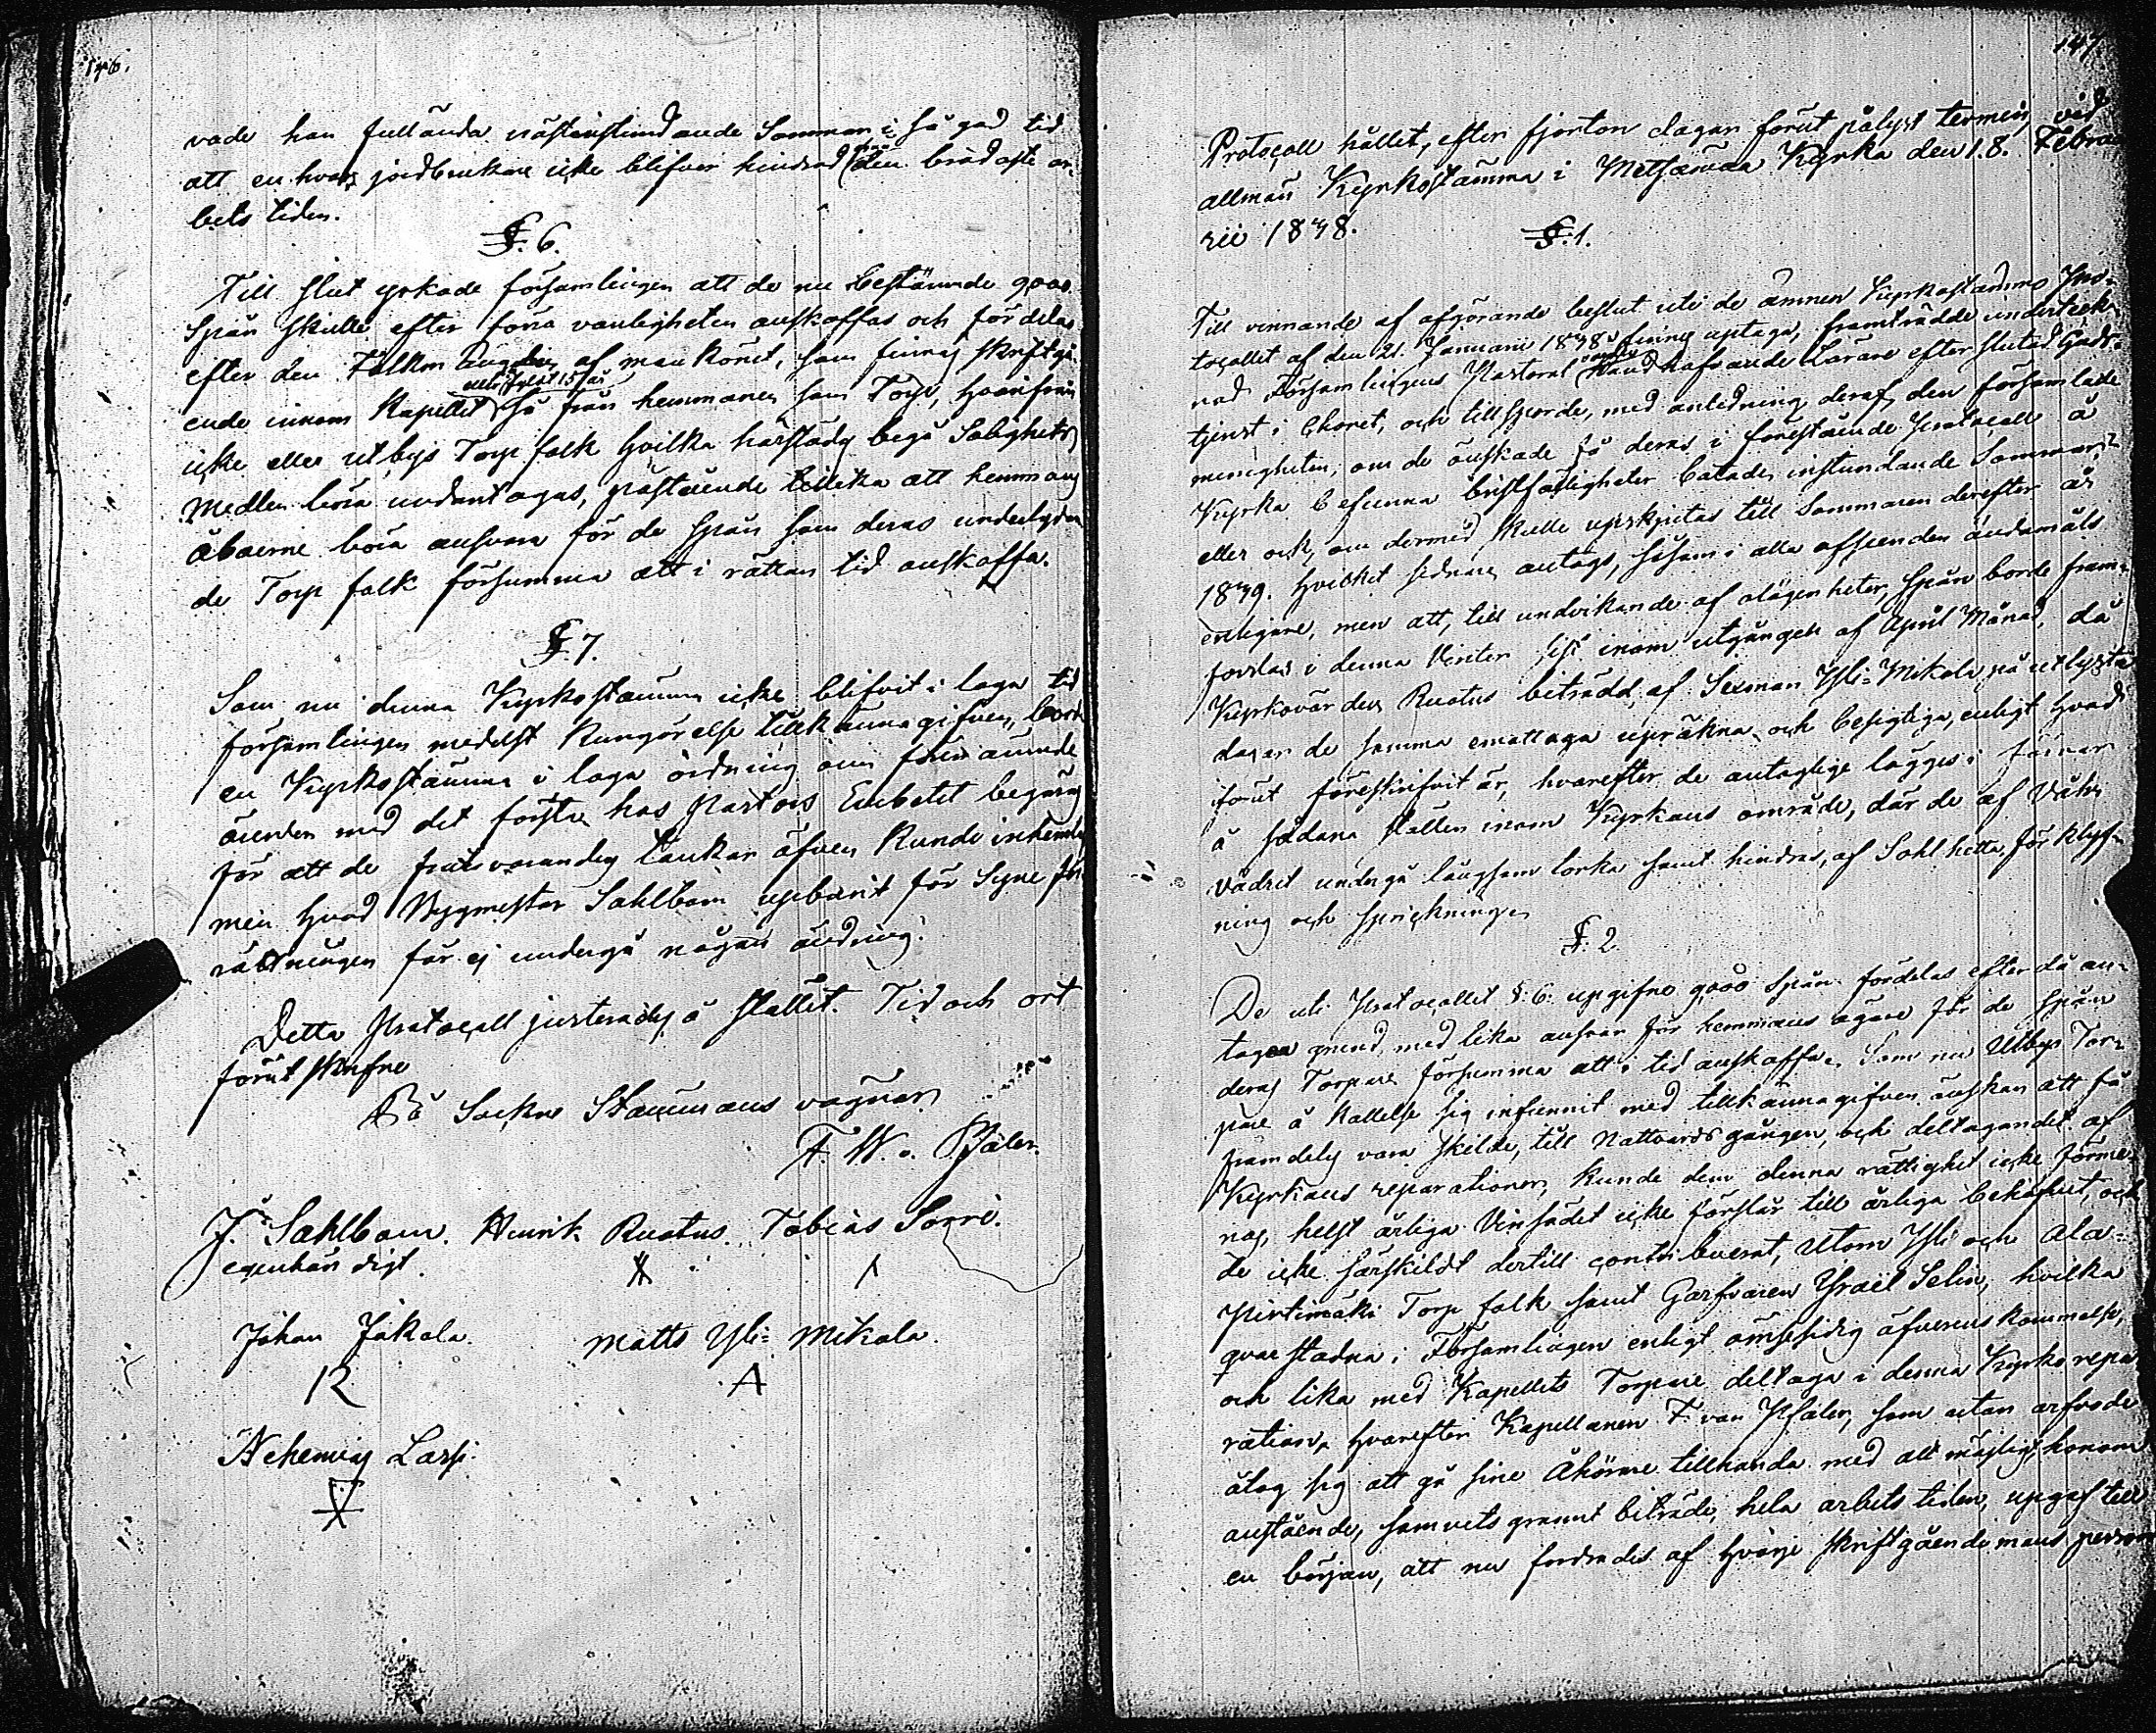 146.
vade han fullända nästinstundande Sommar i så god tid
att en hvar jordbrukare icke blifver hindrad den brådaste ar-
bets tiden.
§. 6.
Till slut yrkade församlingen att de nu bestämde 9000
Spån skulle efter förra vanligheten anskaffas och fördelas
efter den Folkm af mankönet, som finnes skriftgå-
eller fyllt 15 år
ende innom Kapellet så från hemmanen som Torp, hvarifrån
icke eller utbys Torp folk hvilka härstädes begå Salighets
Medlen böra undantagas, påstående tillika att hemmans
åboerne böra ansvara för de Spån som deras underlydan
de Torp folk försumma att i rättan tid anskaffa.
§. 7.
Som nu denna Kyrkostämma icke blifvit i laga tid
församlingen medelst Kungörelse tillkännagifven, borde
en Kyrkostämma i laga ordning om förenämnde
ämnen med det första hos Pastors Embetet begäras
för att de frånvarandes tankar äfven Kunde inhemtas
men hvad Byggmester Sahlbom upburit för Syne för
rättningen får ej undergå någon ändring.
Detta Protocoll justerades å stället. Tid och ort
förut skrefne
På Sockne Stämmans vägnar
F. W. v. Pfaler.
J. Sahlbom. Henrik Ruotus. Tobias Sorri.
egenhändigt.
Johan Jakola. Matts Yli-Mikola.
Nehemias Lassi.
147
Protocoll hållet, efter fjorton dagar förut pålyst termin, vid
allmän Kyrkostämma i Metsämaa Kyrka den 1.8. Februa
rii 1838.
§. 1.
Till vinnande af afgörande beslut uti de ämnen Kyrkostämmo Pro-
tocollet af den 21. Januarii 1838 finnes uptaga, framträdde underteck-
nad Församlingens Pastoral vård handhafvande Lärare efter slutad Guds-
tjenst i Choret, och tillsporde, med anledning deraf, den församlade
menigheten; om de önskade få deras i förestående Protocoll å
Kyrka befunna bristfälligheter botade, instundande Sommar,
eller ock, om dermed skulle upskjutas till Sommaren derefter år
1839. Hvilket sednare antogs, såsom i alla afseenden ändamåls
enligare, men att, till undvikande af olägenheter, Spån borde fram-
forslas i denna Vinter sist inom utgången af April Månad, då
Kyrkovärden Ruotus biträdd af Sexman Yli-Mikola på utlysta
dagar de samma emottaga upräkna och besigtiga, enligt hvad
förut föreskrifvit är, hvarefter de antaglige lägges i förvar
å sådana ställen inom Kyrkans område, där de af Vår
vädret undergå långsam torka samt hindras, af Sohl hetta, för klyf-
ning och sprickningen
§. 2
De uti Protocollet §. 6. upgifne 9000 Spån fördelas efter då an-
tagen grund, med lika ansvar för hemmans ägare för de Spån
deras Torpare försumma att i tid anskaffa. Som nu Utbys Tor-
pare å Kallelse sig infunnit med tillkännagifven önskan att få
framdeles vara skilde, till Nattvards gången, och deltagandet af
Kyrkans reparationer, Kunde dem denna rättighet icke förme-
nas, helst årliga Vinsädet icke förslår till årliga behofvet, och
de icke särskildt dertill contribuerat, utom Yli och Ala-
Pirtimäki Torp folk samt Garfvaren Israel Selin, hvilka
qvarstadna i Församlingen enligt ömsesidig öfverenskommelse,
och lika med Kapellets Torpare deltaga i denna Kyrko repa-
ration, hvarefter Kapellanen F. von Pfaler, som utan arfvode
åtog sig att gå sine Åhörare tillhanda med allt möjligt, honom
anstående, samvets grant biträde, hela arbets tiden, upgaf till
en början, att nu fordrades af hvarje skriftgående mans person